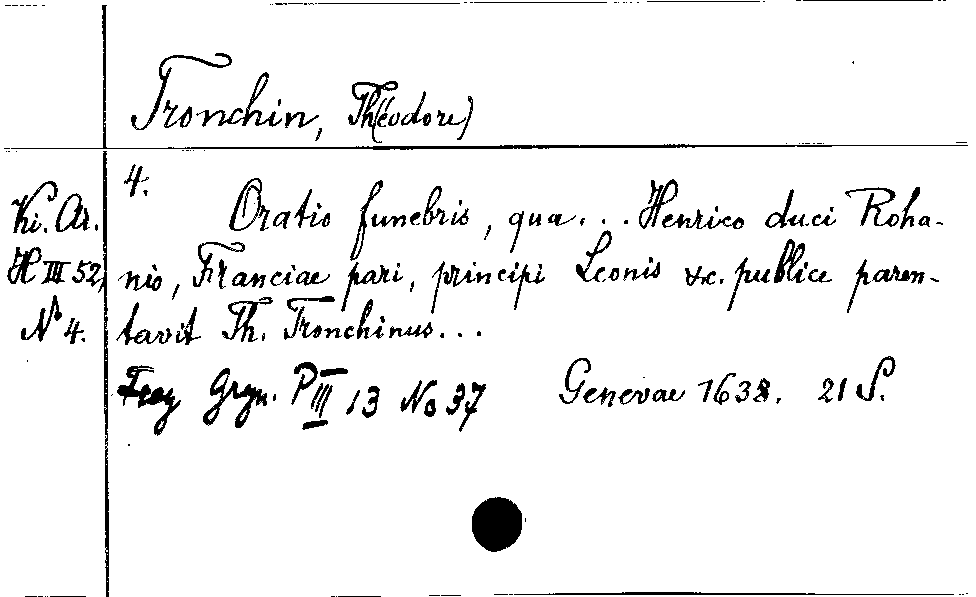 Tronchin, Th(éodore)
4.
Ki. Ar.
H III 52,
No 4.
Oratio funebris, qua... Henrico duci Roha-
nio, Franciae pari, principi Leonis &c. publice paren-
tavit Th. Tronchinus...
Frey Gryn. P III 13 No 37 Genevae 1638. 21 S.